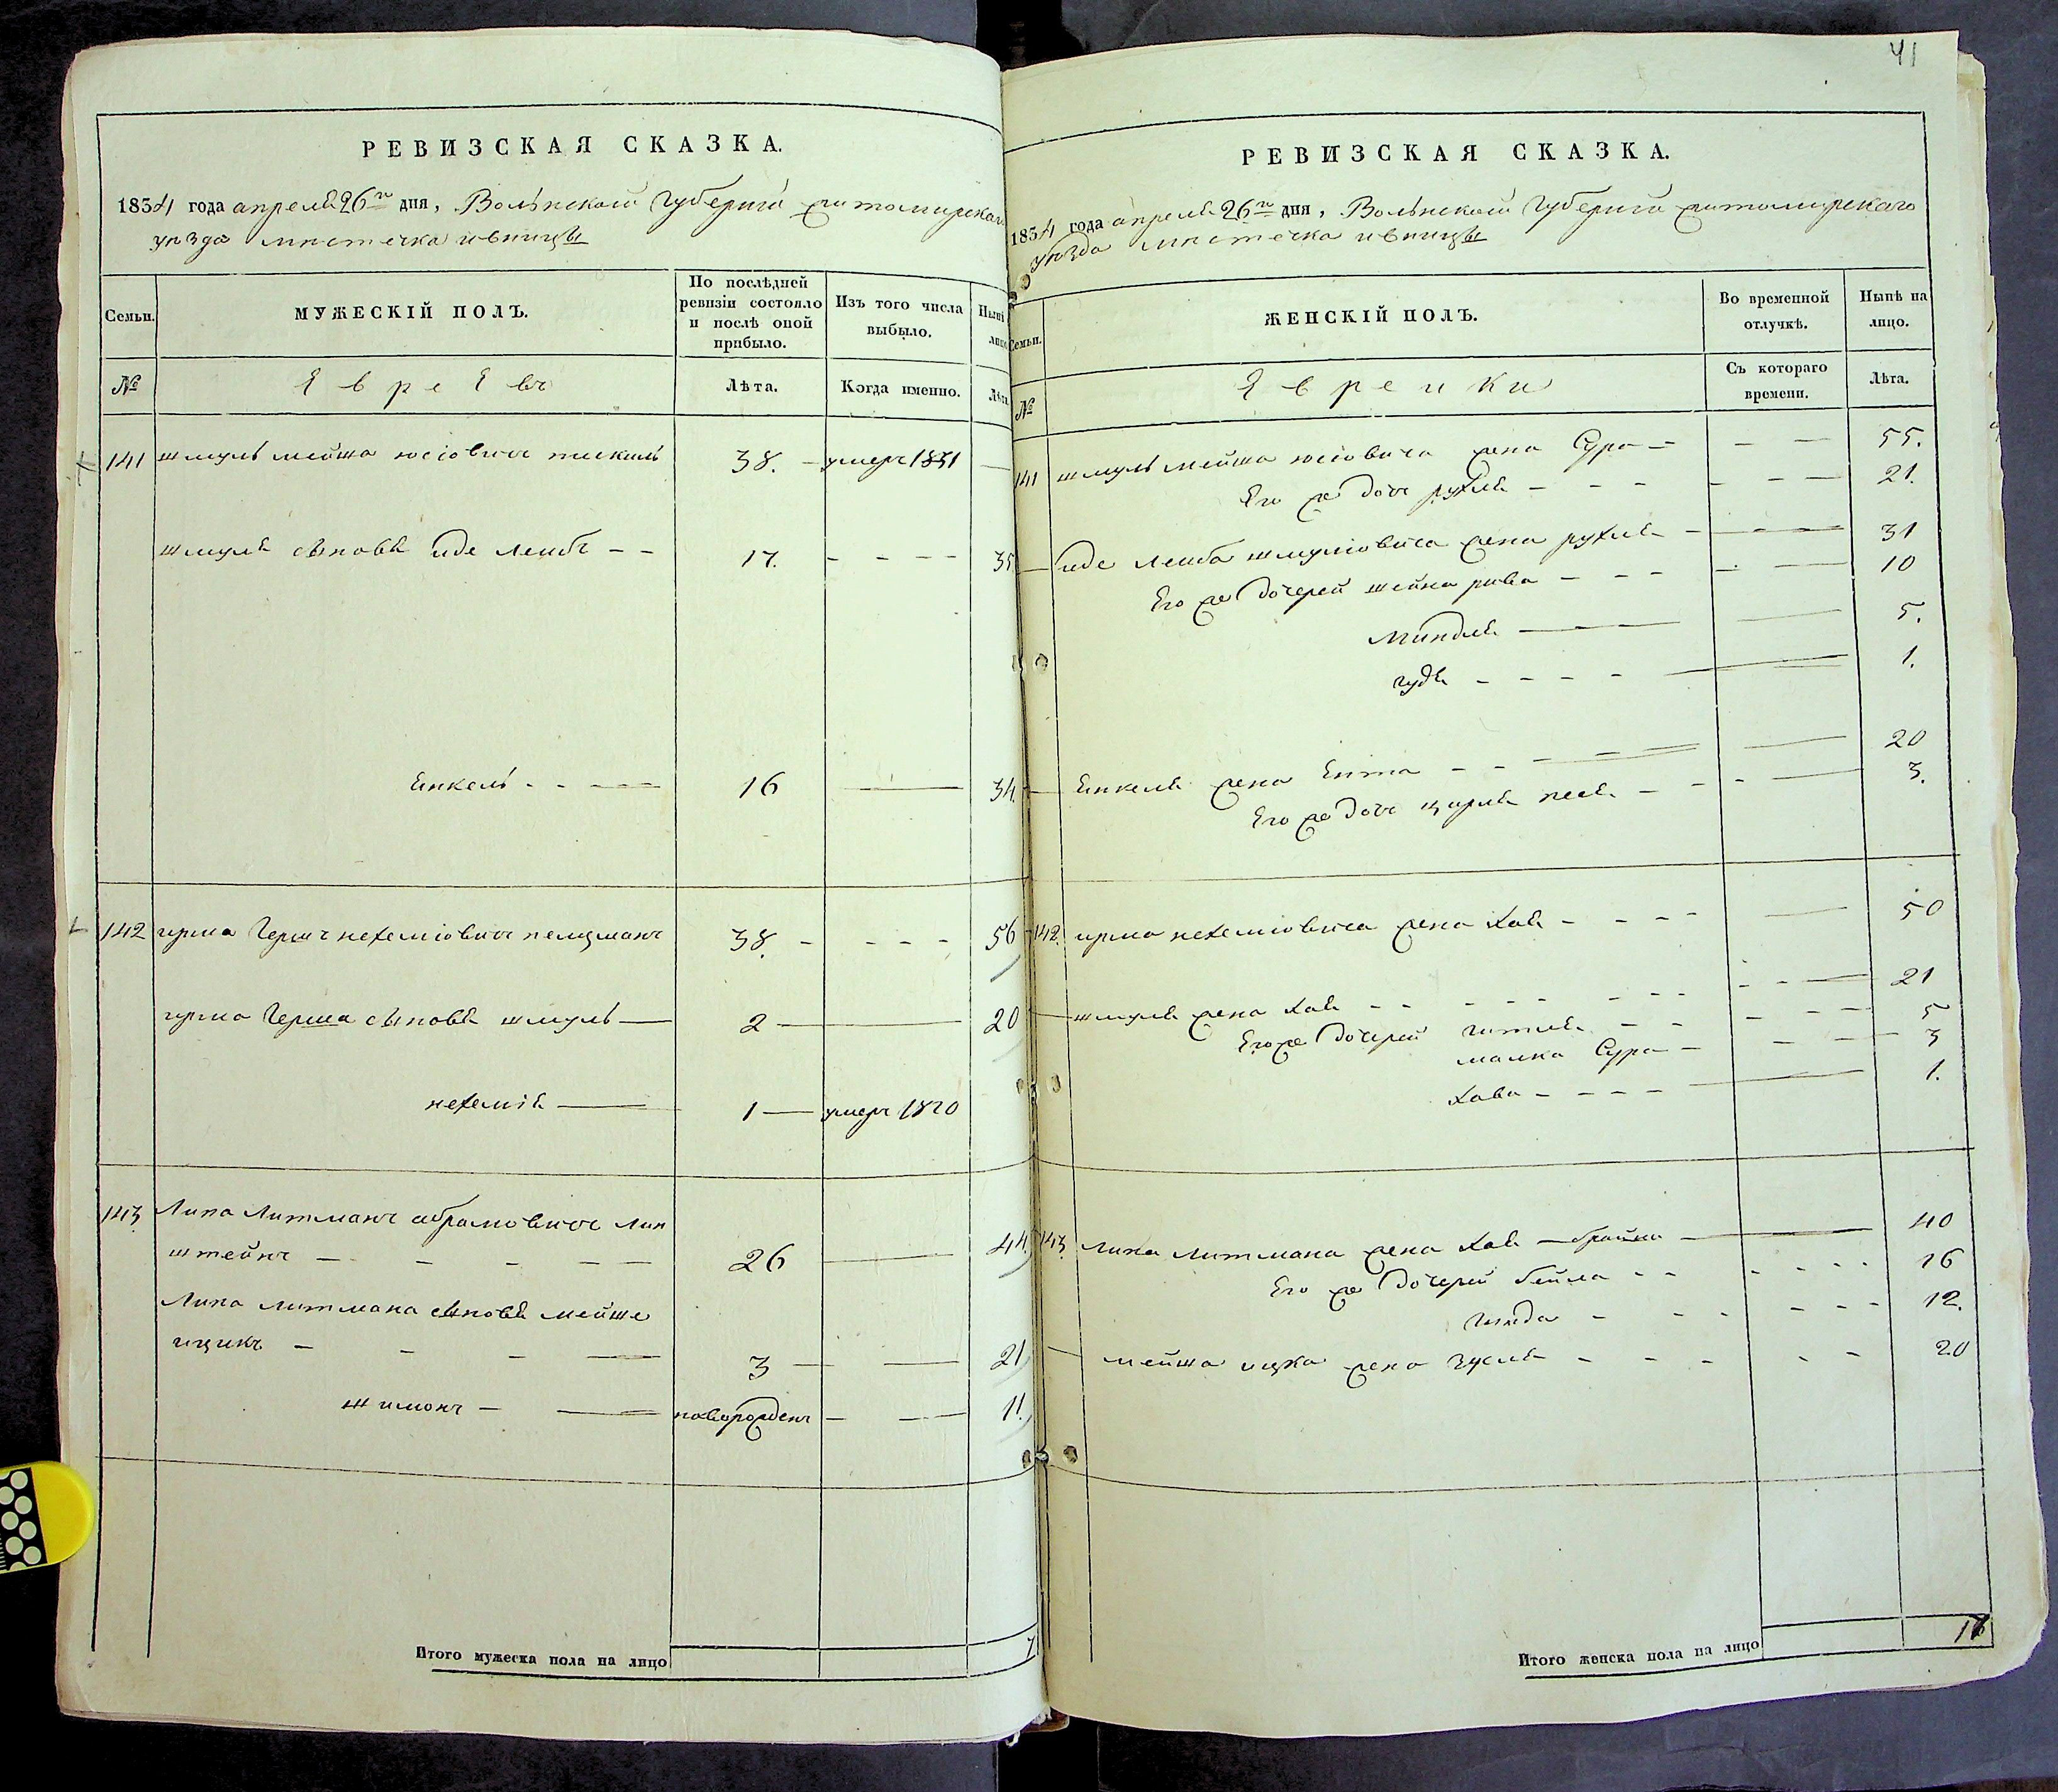 41
РЕВИЗСКАЯ СКАЗКА.
1834 года апреля 26го дня, Волынской Губернiи житомирскаго
уѣзда мѣстечка ивницы
Семьи.
МУЖЕСКIЙ ПОЛЪ.
По послѣдней
ревизiи состояло
и послѣ оной
прибыло.
Изъ того числа
выбыло.
Нынѣ
лицо
№
Евреевъ
Лѣта.
Когда именно.
Лѣта
141 шмуль мейша юсiовичъ 38. умеръ 1831
шмуля сыновья иде лейбъ 17. 35
Енкель 16 34.
142 ирма Гершъ нехемiовичъ пелцманъ 38. 56
ирма Герша сыновья шмуль 2 20
нехемiя 1 умеръ 1820
143 Липа Литманъ абрамовичъ лин
штейнъ 26 44.
Липа литмана сыновья мейше
ицикъ 3 21
шимонъ новорожденъ 11.
Итого мужеска пола на лицо 7
РЕВИЗСКАЯ СКАЗКА.
1834 года апреля 26го дня, Волынской Губернiи житомирскаго
уѣзда мѣстечка ивницы
Семьи.
ЖЕНСКIЙ ПОЛЪ.
Во временной
отлучкѣ.
Нынѣ на
лицо.
№
Еврейки
Съ котораго
времени.
Лѣта.
141 шмуль мейша юсiовича жена Сура 55.
Его же дочь рухля 21.
иде лейба шмулiовича жена рухля 31
Его же дочерей шейна рива 10
миндля 5.
гудя 1.
Енкеля жена Ента 20
Его же дочь цирля песя 3.
142. ирма нехемiовича жена хая 50
шмуля жена хая 21
Его же дочерей гитля 5
малка Сура 3
хава 1.
143. липа литмана жена хая брайна 40
Его же дочерей бейла 16
гинда 12.
мейша ицка жена зуся 20
Итого женска пола на лицо